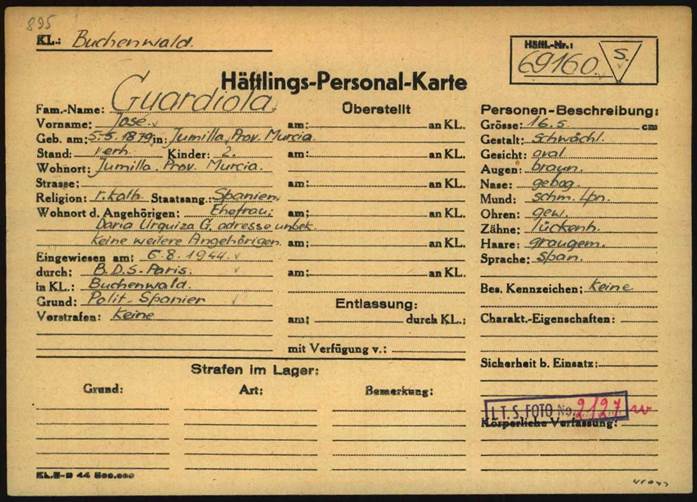 895
KL.: Buchenwald.
Häftl.-Nr.:
69160 S.
Häftlings-Personal-Karte
Fam.-Name: Guardiola
Vorname: José
Geb. am: 5.5.1879 in: Jumilla, Prov. Murcia.
Stand: verh. Kinder: 2.
Wohnort: Jumilla, Prov. Murcia.
Strasse:
Religion: r. kath. Staatsang. Spanien
Wohnort d. Angehörigen: Ehefrau:
Daria Urquiza G, adresse unbek.
Keine weitere Angehörigen
Eingewiesen am: 6.8.1944.
durch: B.D.S. Paris.
in KL.: Buchenwald.
Grund: Polit-Spanier
Vorstrafen: Keine
Überstellt
am: an KL.
am: an KL.
am: an KL.
am: an KL.
am: an KL.
am: an KL.
Entlassung:
am: durch KL.:
mit Verfügung v.:
Personen-Beschreibung:
Grösse: 16.5 cm
Gestalt: schwächl.
Gesicht: oval
Augen: braun.
Nase: gebog.
Mund: schm. Lpn.
Ohren: gew.
Zähne: lückenh.
Haare: graugem.
Sprache: span.
Bes. Kennzeichen: keine
Charakt.-Eigenschaften:
Sicherheit b. Einsatz:
I.T.S. FOTO No. 2127
Körperliche Verfassung:
Strafen im Lager:
Grund: Art: Bemerkung: